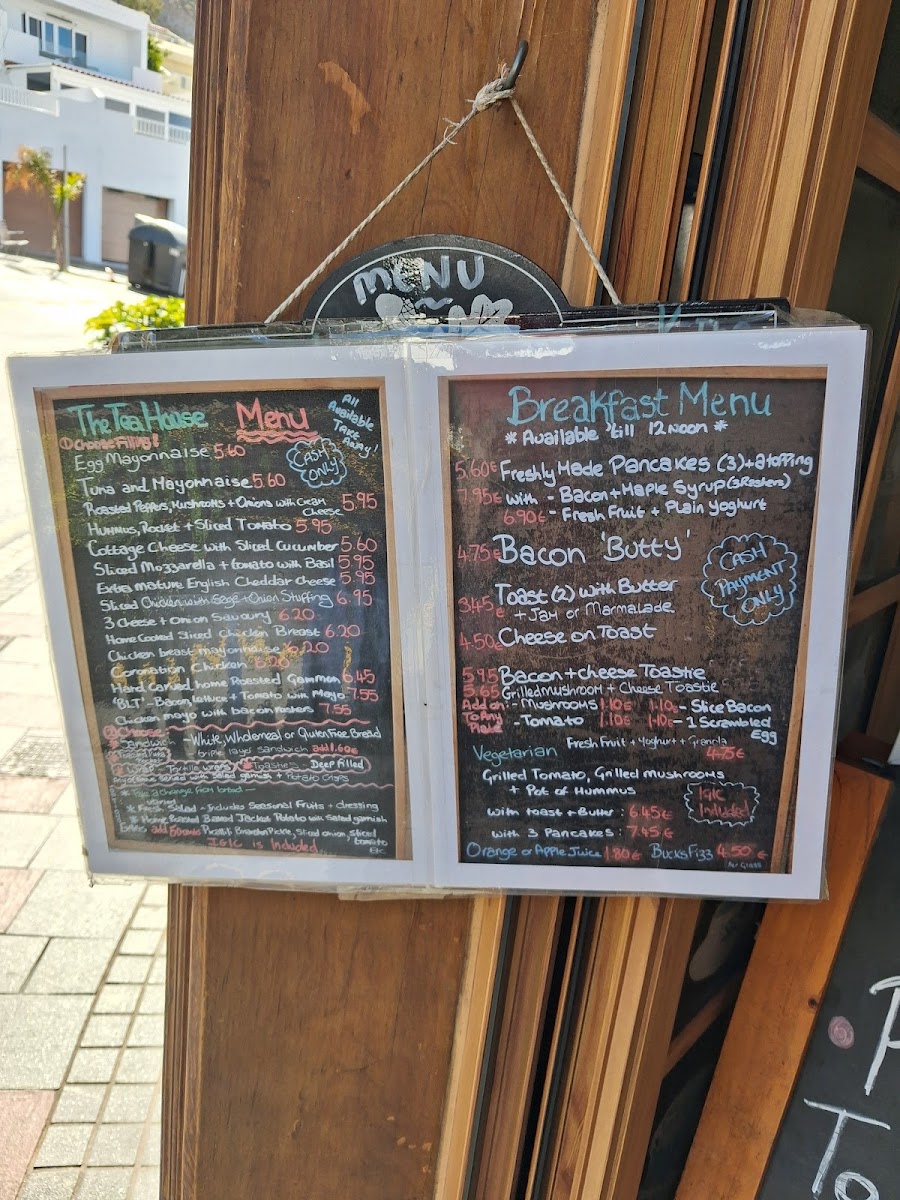 MENU
The Tea House Menu
All Available Take Away!
① Choose Filling!
CASH ONLY
Egg Mayonnaise 5.60
Tuna and Mayonnaise 5.60
Roasted Peppers, Mushrooms + Onions with Cream Cheese 5.95
Hummus, Rocket + Sliced Tomato 5.95
Cottage Cheese with Sliced Cucumber 5.60
Sliced Mozzarella + tomato with Basil 5.95
Extra mature English Cheddar Cheese 5.95
Sliced Chicken with Sage + Onion Stuffing 6.95
3 Cheese + Onion Savoury 6.20
Home Cooked Sliced Chicken Breast 6.20
Chicken breast mayonnaise 6.20
Coronation Chicken 6.20
Hard Carved, home Roasted Gammon 6.45
'BLT' - Bacon, lettuce + Tomato with Mayo 7.55
Chicken mayo with bacon rashers 7.55
② Choose
Sandwich - White, Wholemeal or Gluten Free Bread
triple layer sandwich add 1.60€
Tortilla wraps Toasties - Deep filled
Any of these served with Salad garnish + Potato Crisps
* For a change from bread -
* Fresh Salad - Includes Seasonal Fruits + dressing
* Home Roasted Baked Jacket Potato with Salad garnish
Extras add 50cents Piccalilli, Branston Pickle, Sliced onion, sliced tomato Etc
IGIC is Included
Breakfast Menu
* Available 'till 12 noon *
5.60€ Freshly Made Pancakes (3) + a topping
7.95€ with - Bacon + Maple Syrup (3 Rashers)
6.90€ - Fresh Fruit + Plain Yoghurt
4.75€ Bacon 'Butty'
CASH PAYMENT ONLY
3.45€ Toast (2) with Butter
+ Jam or Marmalade
4.50€ Cheese on Toast
5.95 Bacon + cheese Toastie
5.65 Grilled mushroom + Cheese Toastie
Add on To Any Plate : - Mushrooms 1.10€ 1.10€ - Slice Bacon
- Tomato 1.10€ 1.10€ - 1 Scrambled Egg
Fresh Fruit + Yoghurt + Granola
Vegetarian 4.75€
Grilled Tomato, Grilled mushrooms
+ Pot of Hummus
IGIC Included
with toast + Butter : 6.45€
with 3 Pancakes : 7.45€
Orange or Apple Juice 1.80€ Bucks Fizz 4.50€
Per Glass